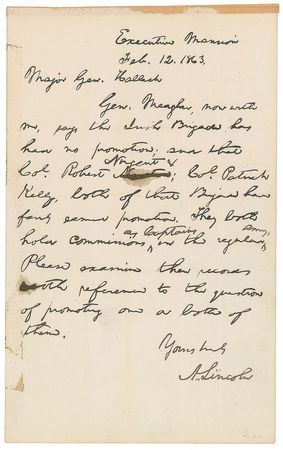 Executive Mansion
Feb. 12. 1863.
Major Gen. Halleck
Gen. Meagher, now with
me, says the Irish Brigade has
had no promotion; and that
Col. Robert Nugent & Col. Patrick
Kelly, both of that Brigade have
fairly earned promotion. They both
hold commissions as Captains in the regular army,
Please examine their records
with reference to the question
of promoting one or both of
them.
Yours truly
A. Lincoln